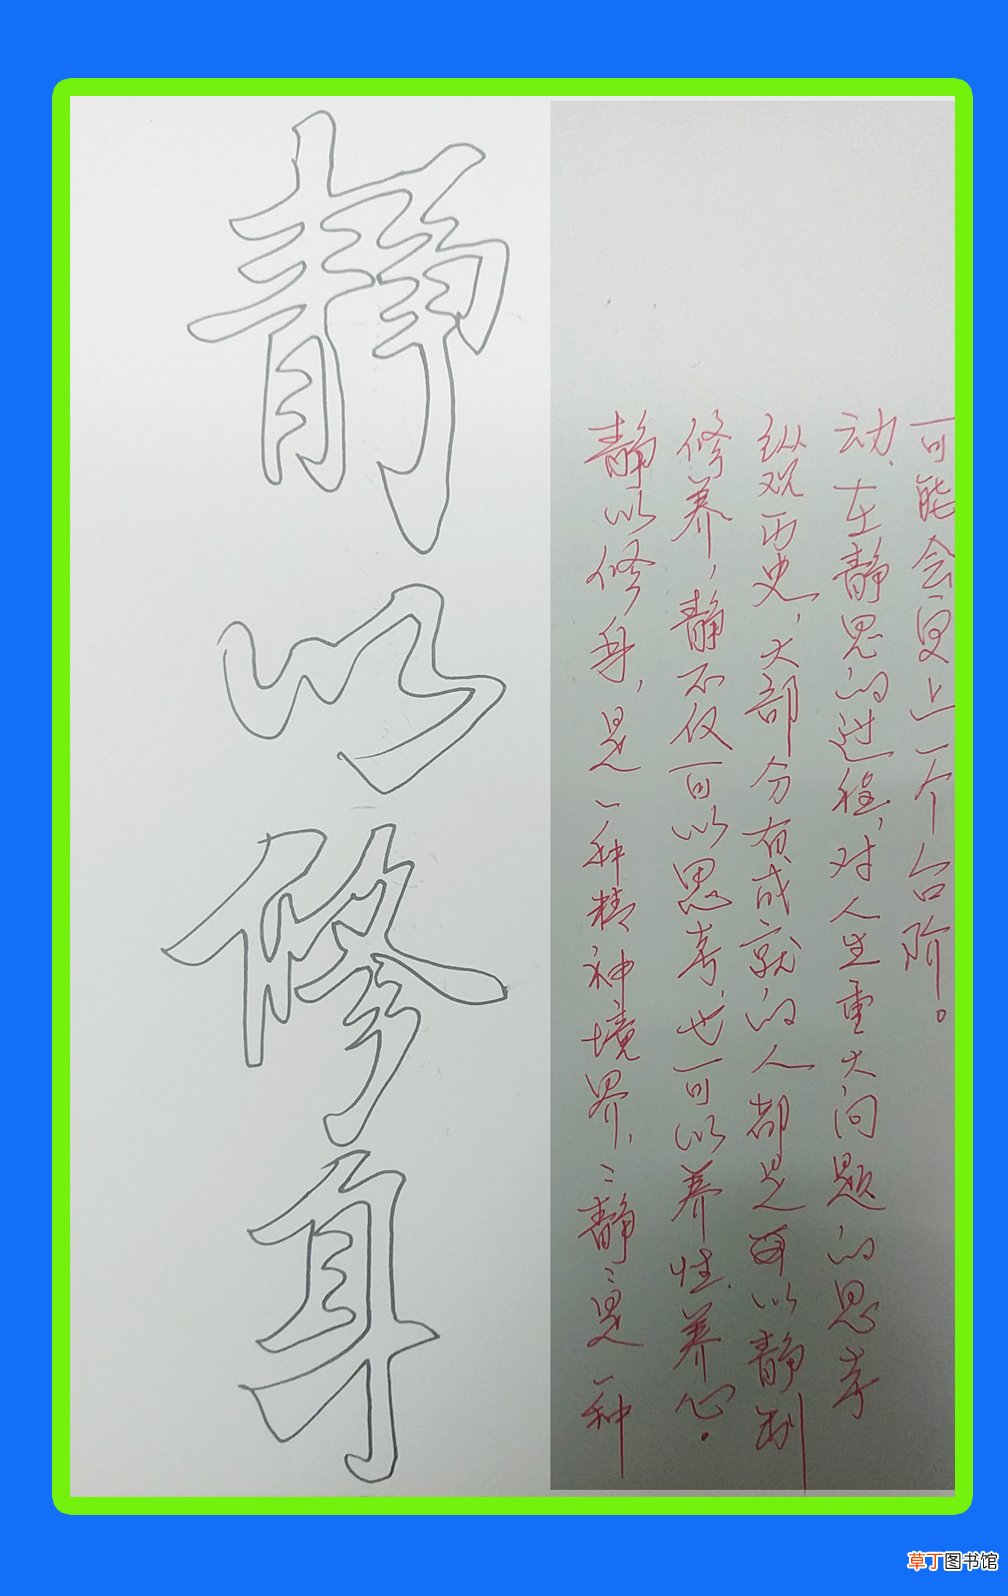 静以修身
静以修身,是一种精神境界,"静"是一种
修养,静不仅可以思考,也可以养性.养心.
纵观历史,大部分有成就的人都是以静制
动.在静思的过程,对人生重大问题的思考
可能会更上一个台阶。
草丁图书馆